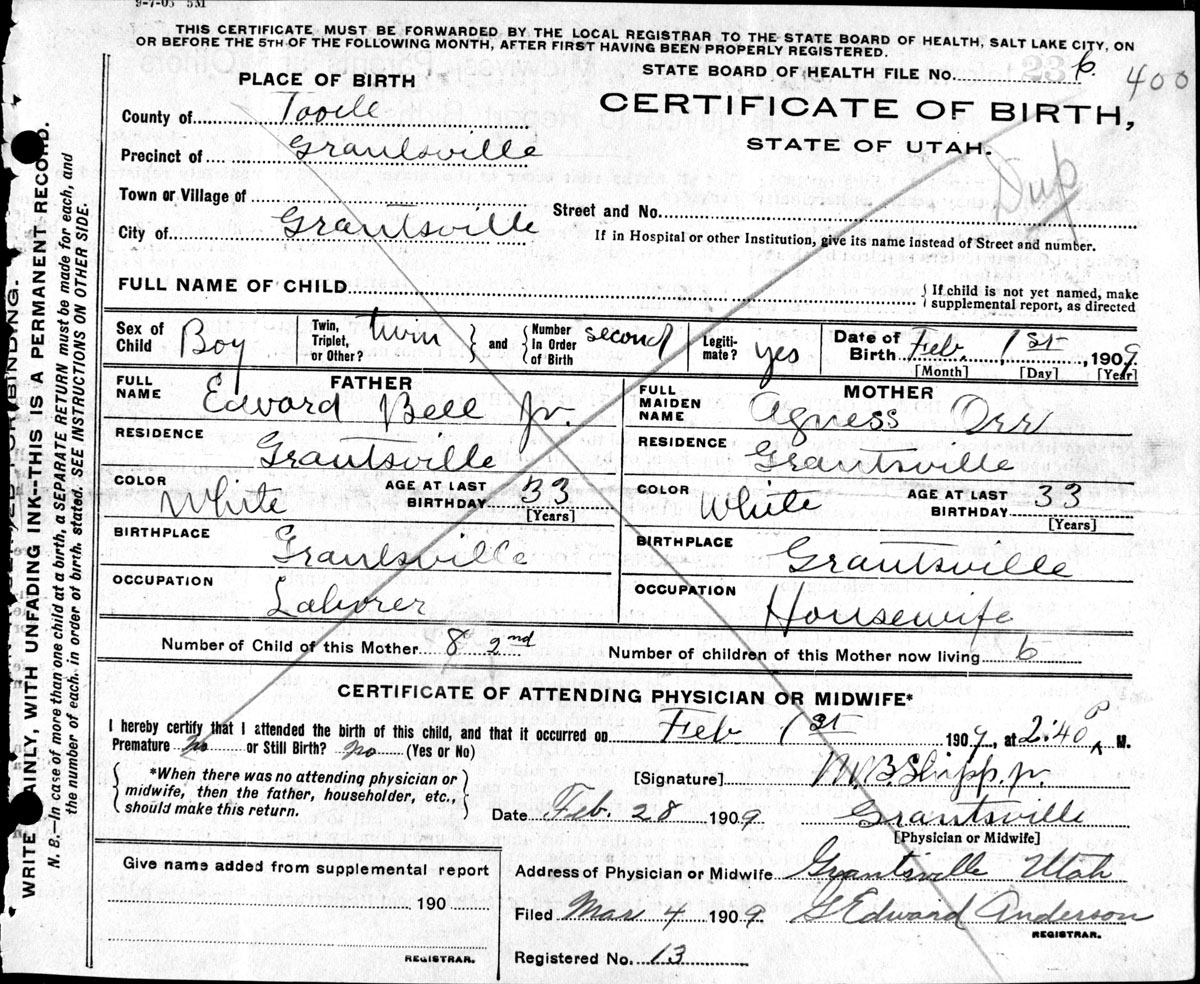 9-7-05 5M
THIS CERTIFICATE MUST BE FORWARDED BY THE LOCAL REGISTRAR TO THE STATE BOARD OF HEALTH, SALT LAKE CITY, ON
OR BEFORE THE 5TH OF THE FOLLOWING MONTH, AFTER FIRST HAVING BEEN PROPERLY REGISTERED.
STATE BOARD OF HEALTH FILE No. 6
400
PLACE OF BIRTH
CERTIFICATE OF BIRTH,
STATE OF UTAH.
Dup
County of Tooele
Precinct of Grantsville
Town or Village of
City of Grantsville
Street and No.
If in Hospital or other Institution, give its name instead of Street and number.
FULL NAME OF CHILD
{ If child is not yet named, make
supplemental report, as directed
Sex of Child Boy
Twin, Triplet, or Other? twin } and { Number In Order of Birth second
Legiti-mate? yes
Date of Birth Feb. 1st, 1909
[Month] [Day] [Year]
FATHER
FULL NAME Edward Bell Jr.
RESIDENCE Grantsville
COLOR White AGE AT LAST BIRTHDAY 33
[Years]
BIRTHPLACE Grantsville
OCCUPATION Laborer
MOTHER
FULL MAIDEN NAME Agness Orr
RESIDENCE Grantsville
COLOR White AGE AT LAST BIRTHDAY 33
[Years]
BIRTHPLACE Grantsville
OCCUPATION Housewife
Number of Child of this Mother 8 2nd Number of children of this Mother now living 6
CERTIFICATE OF ATTENDING PHYSICIAN OR MIDWIFE*
I hereby certify that I attended the birth of this child, and that it occurred on Feb 1st 1909, at 2:40 P M.
Premature no or Still Birth? no (Yes or No)
{ *When there was no attending physician or
midwife, then the father, householder, etc.,
should make this return. }
[Signature] M.B. Shipp. Jr.
Date Feb. 28 1909 Grantsville
[Physician or Midwife]
Give name added from supplemental report
190
REGISTRAR.
Address of Physician or Midwife Grantsville Utah
Filed Mar 4 1909 G Edward Anderson
REGISTRAR.
Registered No. 13
WRITE PLAINLY, WITH UNFADING INK--THIS IS A PERMANENT RECORD.
N. B.—In case of more than one child at a birth, a SEPARATE RETURN must be made for each, and
the number of each, in order of birth, stated. SEE INSTRUCTIONS ON OTHER SIDE.